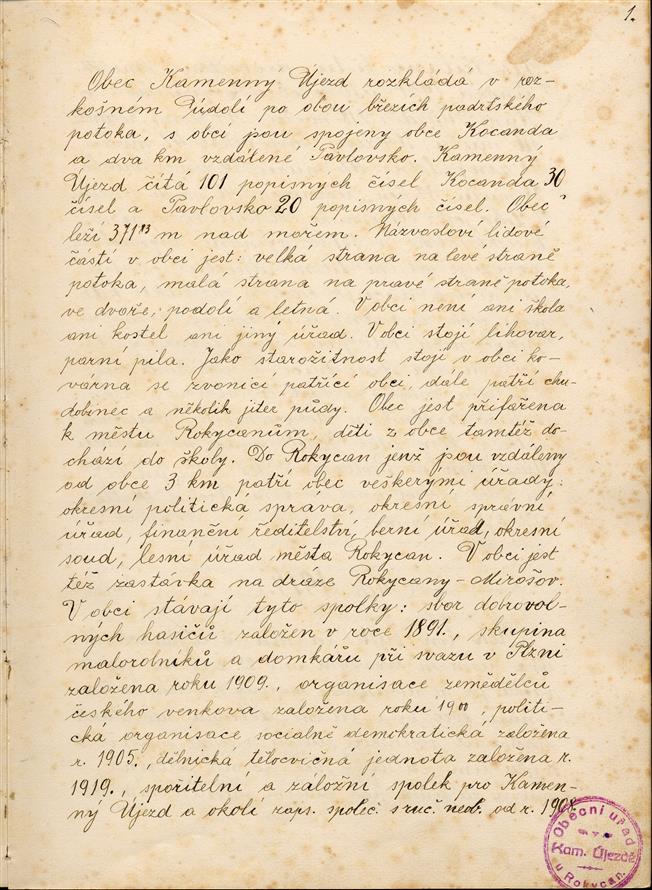 1.
Obec Kamenný Újezd rozkládá v roz-
košném Údolí po obou březích padrťského
potoka, s obcí jsou spojeny obce Kocanda
a dva km vzdálené Pavlovsko. Kamenný
Újezd čítá 101 popisných čísel Kocanda 30
čísel a Pavlovsko 20 popisných čísel. Obec
leží 371 m nad mořem. Názvosloví lidové
částí v obci jest: velká strana na levé straně
potoka, malá strana na pravé straně potoka,
ve dvoře, podolí a letná. V obci není ani škola
ani kostel ani jiný úřad. V obci stojí lihovar,
parní pila. Jako starožitnost stojí v obci ko-
várna se zvonicí patřící obci, dále patří chu-
dobinec a několik jiter půdy. Obec jest přifařena
k městu Rokycanům, děti z obce tamtéž do-
chází do školy. Do Rokycan jenž jsou vzdáleny
od obce 3 km patří obec veškerými úřady:
okresní politická správa, okresní správní
úřad, finanční ředitelství, berní úřad, okresní
soud, lesní úřad města Rokycan. V obci jest
též zastávka na dráze Rokycany-Mirošov.
V obci stávají tyto spolky: sbor dobrovol-
ných hasičů založen v roce 1891., skupina
malorolníků a domkářu při svazu v Plzni
založena roku 1909., organisace zemědělců
českého venkova založena roku 1900, politi-
cká organisace socialně demokratická založena
r. 1905., dělnická tělocvičná jednota založena r.
1919., spořitelní a záložní spolek pro Kamen-
ný Újezd a okolí zaps. společ. s ruč. neob. od r. 1908.
Obecní úřad
Kam. Újezdě
u Rokycan.